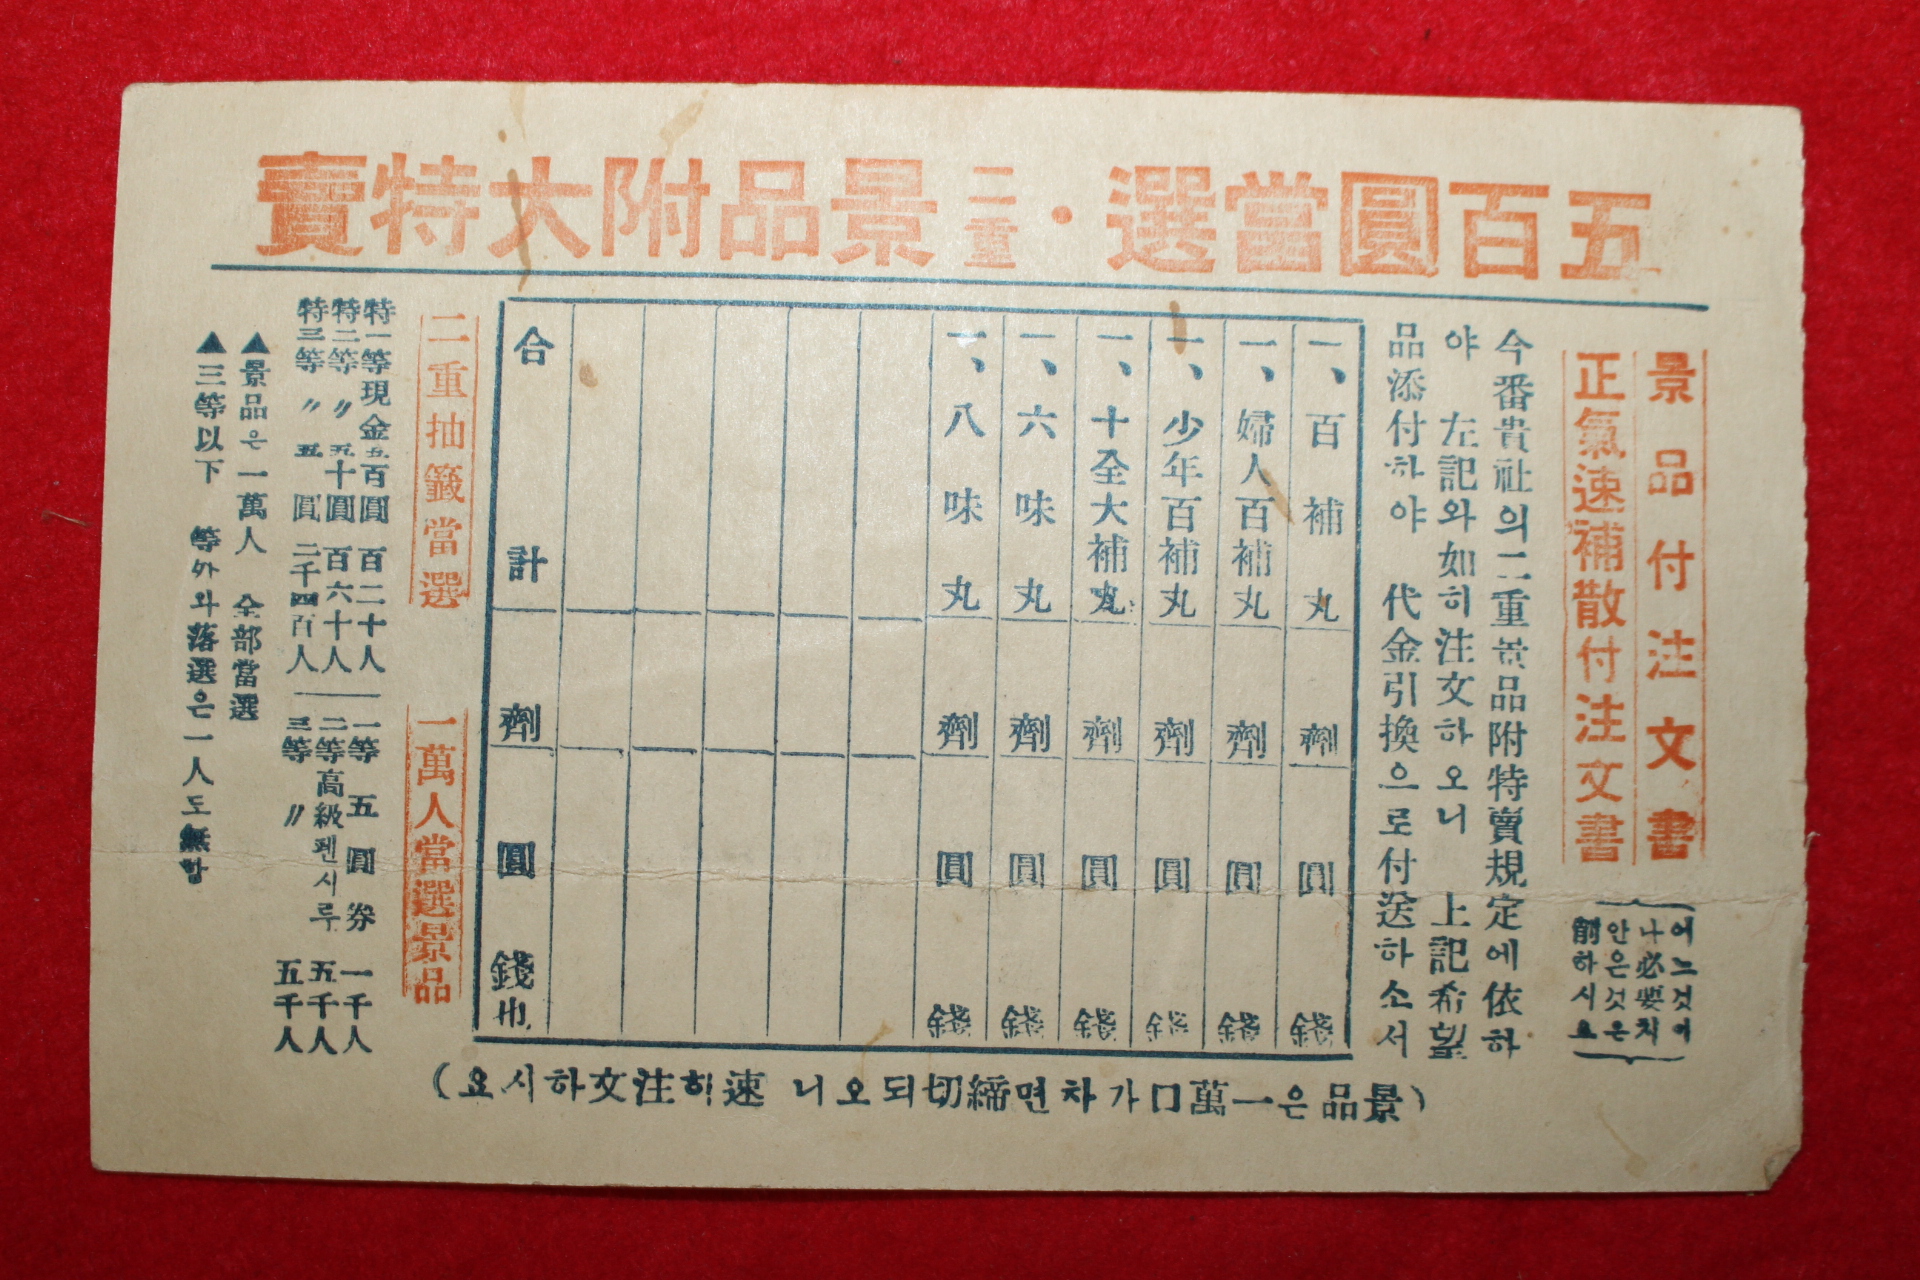 五百圓當選・二重景品附大特賣
景品付注文書
正氣速補散付注文書
어느것이
나必要치
안은것은
削하시요
今番貴社의二重景品附特賣規定에依하
야 左記와如히注文하오니 上記希望
品添付하야 代金引換으로付送하소서
一、百補丸 劑 圓 錢
一、婦人百補丸 劑 圓 錢
一、少年百補丸 劑 圓 錢
一、十全大補丸 劑 圓 錢
一、六味丸 劑 圓 錢
一、八味丸 劑 圓 錢
合計 劑 圓 錢也
(景品은一萬口가차면締切되오니 速히注文하시요)
二重抽籤當選
一萬人當選景品
特一等現金五百圓 百二十人
特二等〃五十圓 百六十人
特三等〃五圓 二千四百人
一等 五圓券 一千人
二等高級펜시루 五千人
三等〃 五千人
▲景品은一萬人 全部當選
▲三等以下 等外와落選은一人도無함